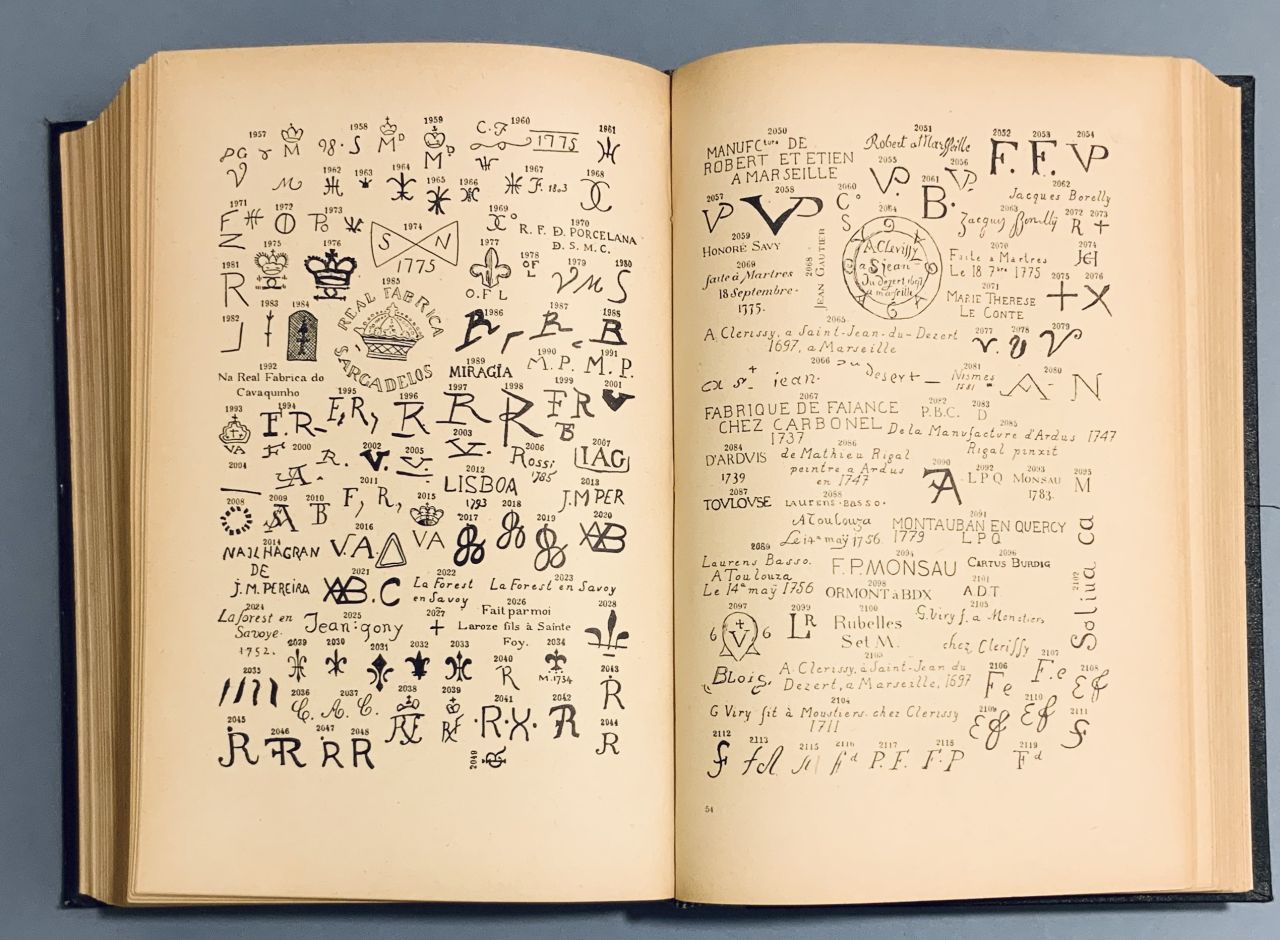 1957
1958
1959
1960
1961
M
98·S
M D
M P
C.F
1775
1962
1963
1964
1965
1966
1967
F. 1803
1968
1969
1970
R. F. D. PORCELANA
D. S. M. C.
1971
1972
1973
1974
S N
1775
1975
1976
1977
O.F L
1978
OF
L
1979
1980
S
1981
R
1982
1983
1984
1985
REAL FABRICA
SARGADELOS
1986
1987
1988
1989
MIRAGIA
1990
M.P.
1991
M.P.
1992
Na Real Fabrica do
Cavaquinho
1993
VA
1994
F.R
1995
F, R,
1996
R
1997
R
1998
R
1999
FR
2000
2001
2002
V.
2003
V.
2004
A.
R.
2005
V.
2006
Rossi
1785
2007
IAG
2008
2009
2010
2011
F, R,
2012
LISBOA
1793
2013
J.M PER
2014
NA ILHAGRAN
DE
J. M. PEREIRA
2015
VA
2016
V.A.
2017
2018
2019
2020
2021
.C
2022
La Forest
en Savoy
2023
La Forest en Savoy
2024
Laforest en
Savoye.
1752.
2025
Jean:gony
2026
Fait par moi
Laroze fils à Sainte
Foy.
2027
+
2028
2029
2030
2031
2032
2033
2034
M. 1734
2035
2036
C.
2037
A. C.
2038
2039
2040
R
2041
·R·X·
2042
2043
R
2044
R
2045
2046
2047
R
2048
R
2049
2050
MANUFCture DE
ROBERT ET ETIEN
A MARSEILLE
2051
Robert a Marsseille
2052
F.
2053
F.
2054
VP
2055
VP
2056
VP
2057
VP
2058
VP
2059
HONORÉ SAVY
2060
C°
S
2061
B.
2062
Jacques Borelly
2063
Jacques Borelly
2064
A. Clerissy
a S jean
du dezert 1697
a marseille
2065
A. Clerissy, a Saint-Jean-du-Dezert
1697, a Marseille
2066
a st jean du desert
2067
FABRIQUE DE FAIANCE
CHEZ CARBONEL
1737
2068
JEAN GAUTIER
2069
faite à Martres
18 Septembre.
1775.
2070
Faite a Martres
Le 18 7bre 1775
2071
MARIE THERESE
LE CONTE
2072
R
2073
+
2074
2075
+
2076
X
2077
v.
2078
2079
V
2080
A-N
2081
Nismes
1581
2082
P.B.C.
2083
D
2084
D'ARDVIS
1739
2085
De la Manufacture d'Ardus 1747
Rigal pinxit
2086
de Mathieu Rigal
peintre a Ardus
en 1747
2087
TOVLOVSE
2088
LAURENS·BASSO·
A Toulouza
Le 14a maÿ 1756
2089
Laurens Basso.
A Toulouza
Le 14a maÿ 1756
2090
2091
MONTAUBAN EN QUERCY
1779 L P Q
2092
L P Q
2093
MONSAU
1783.
2094
F. P. MONSAU
2095
M
2096
CARTUS BURDIG
2097
6 V 6
2098
ORMONT à BDX
2099
LR
2100
Rubelles
S et M.
2101
A D T.
2102
Saliua ca
2103
A. Clerissy, à Saint-Jean du
Dezert, a Marseille, 1697
Blois,
2104
G Viry fit à Moustiers. chez Clerissy
1711
2105
G. Viry f. a Moustiers
chez Clerissy
2106
Fe
2107
F.e
2108
2109
2110
2111
2112
2113
2115
2116
f d
2117
P. F.
2118
F. P
2119
F d
54